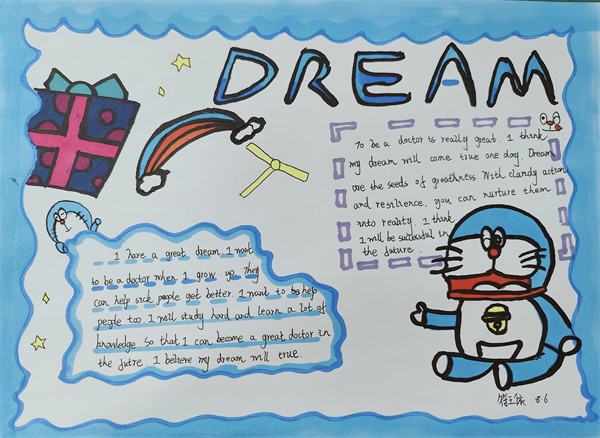 DREAM
To be a doctor is really great. I think
my dream will come true one day. Dream
are the seeds of greathness. With clandy action
and resilience, you can nurture them
into reality. I think
I will be successful in
the future.
I have a great dream. I want
to be a doctor when I grow up. They
can help sick people get better. I want to help
people too. I will study hard and learn a lot of
knowledge so that I can become a great doctor in
the futre. I believe my dream will true.
8.6